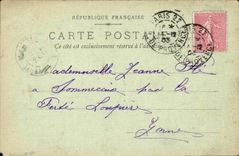 RÉPUBLIQUE FRANÇAISE
CARTE POSTALE
Ce côté est exclusivement réservé à l'adresse
PARIS
Mademoiselle Jeanne
à Sommecaise par la
Ferté Loupière
Yonne